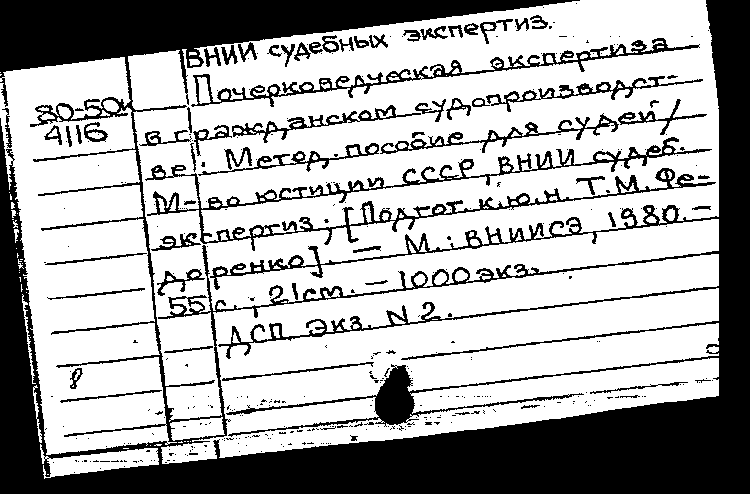 ВНИИ судебных экспертиз.
Почерковедческая экспертиза
80-50к
4116
в гражданском судопроизводст-
ве: Метод. пособие для судей /
М-во юстиции СССР, ВНИИ судеб.
экспертиз; [Подгот. к.ю.н. Т.М. Фе-
доренко]. — М.: ВНИИСЭ, 1980. —
55 с.; 21 cm. — 1000 экз.
ДСП. Экз. N 2.